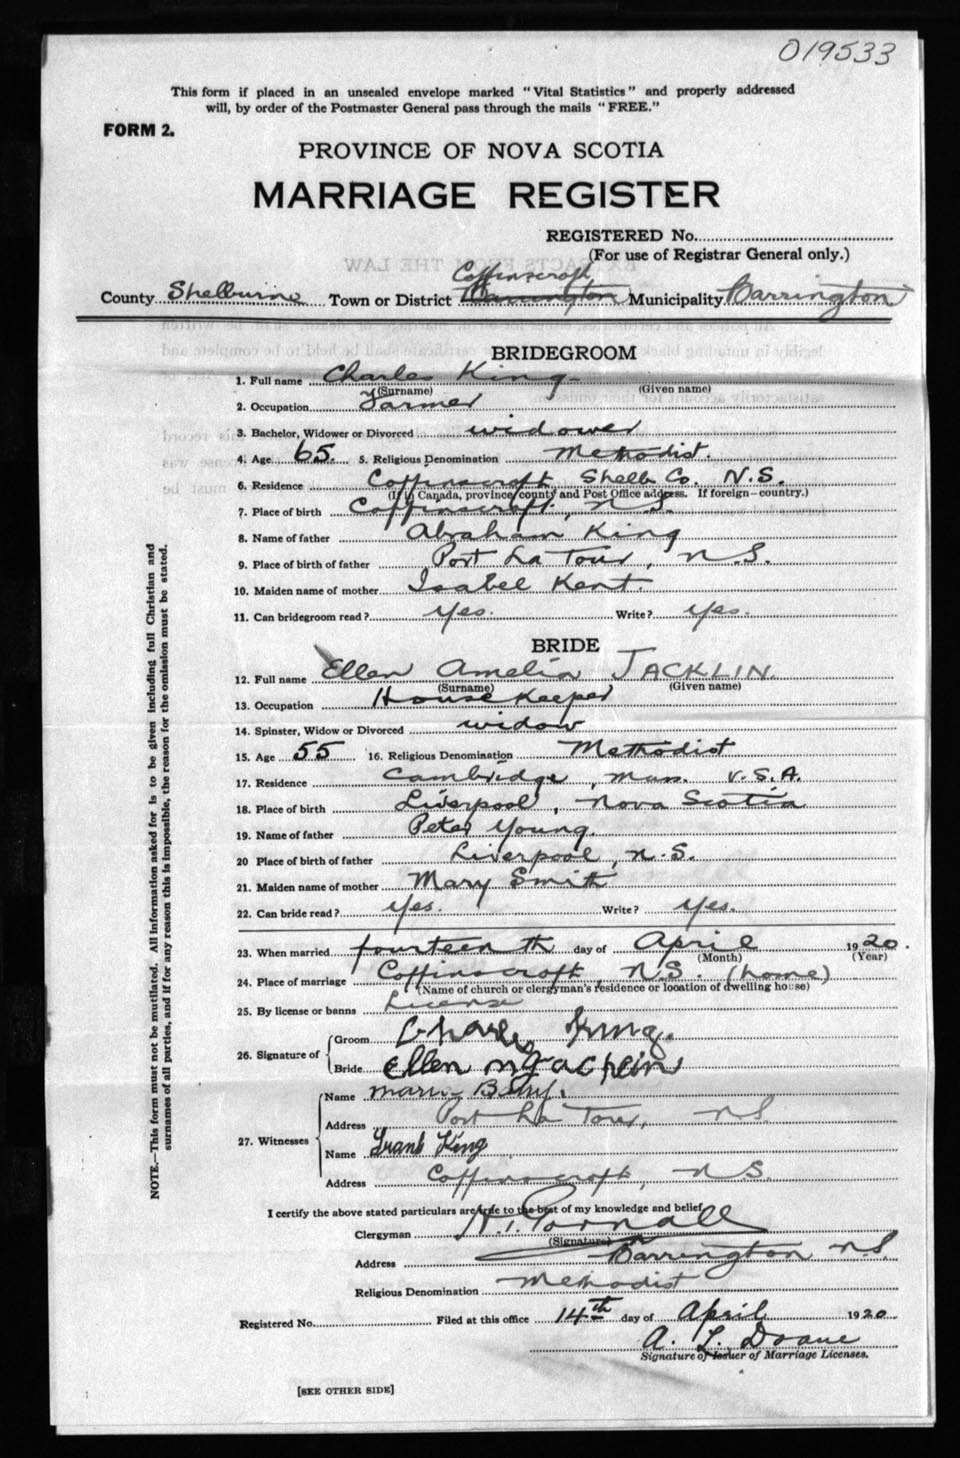 019533
This form if placed in an unsealed envelope marked "Vital Statistics" and properly addressed
will, by order of the Postmaster General pass through the mails "FREE."
FORM 2.
PROVINCE OF NOVA SCOTIA
MARRIAGE REGISTER
REGISTERED No.
(For use of Registrar General only.)
Coffinscroft
County Shelburne Town or District Barrington Municipality Barrington
BRIDEGROOM
1. Full name Charles King
(Surname) (Given name)
2. Occupation Farmer
3. Bachelor, Widower or Divorced widower
4. Age 65. 5. Religious Denomination Methodist.
6. Residence Coffinscroft Shelb. Co. N.S.
(If in Canada, province, county and Post Office address. If foreign—country.)
7. Place of birth Coffinscroft, N.S.
8. Name of father Abraham King
9. Place of birth of father Port La Tour, N.S.
10. Maiden name of mother Isabel Kent.
11. Can bridegroom read? Yes. Write? Yes.
BRIDE
12. Full name Ellen Amelia JACKLIN.
(Surname) (Given name)
13. Occupation House Keeper
14. Spinster, Widow or Divorced widow
15. Age 55 16. Religious Denomination Methodist
17. Residence Cambridge, Mass. U.S.A.
18. Place of birth Liverpool, Nova Scotia
19. Name of father Peter Young.
20 Place of birth of father Liverpool, N.S.
21. Maiden name of mother Mary Smith
22. Can bride read? Yes. Write? Yes.
23. When married fourteenth day of April 1920.
(Month) (Year)
24. Place of marriage Coffinscroft, N.S. (home)
(Name of church or clergyman's residence or location of dwelling house)
25. By license or banns License
26. Signature of Groom Charles King.
Bride Ellen Jacklin
27. Witnesses Name
Address Port La Tour, N.S.
Name Frank King
Address Coffinscroft, N.S.
I certify the above stated particulars are true to the best of my knowledge and belief
Clergyman
(Signature)
Address Barrington N.S.
Religious Denomination Methodist
Registered No. Filed at this office 14th day of April 1920
A. L. Doane
Signature of Issuer of Marriage Licenses.
[SEE OTHER SIDE]
NOTE.—This form must not be mutilated. All information asked for is to be given including full Christian and
surnames of all parties, and if for any reason this is impossible, the reason for the omission must be stated.